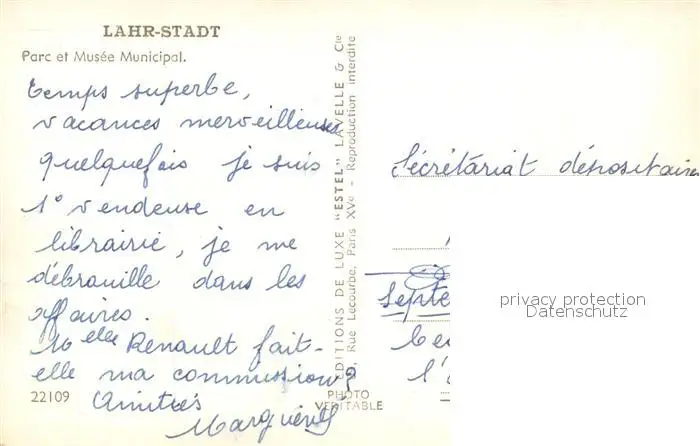 LAHR-STADT
Parc et Musée Municipal.
temps superbe,
vacances merveilleuses
quelquefois je suis
1° vendeuse en
librairie, je me
débrouille dans les
affaires.
Melle Renault fait-
elle ma commission?
Amitiés
22109
PHOTO
VERITABLE
EDITIONS DE LUXE "ESTEL" LAVELLE & Cie
Rue Lecourbe, Paris XVe - Reproduction interdite
Sécrétariat dépositaires
Septe
l'
privacy protection
Datenschutz